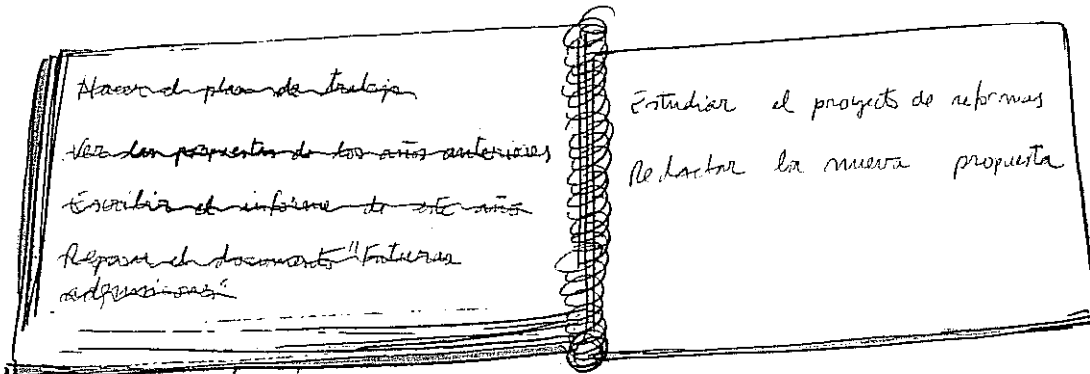 Hacer el plan de trabajo
Ver las propuestas de los años anteriores
Escribir el informe de este año
Repasar el documento "Futuras
adquisiciones"
Estudiar el proyecto de reformas
Redactar la nueva propuesta